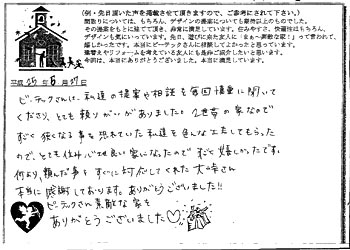 (例・先日頂いた声を掲載させて頂きますので、ご参考にされて下さい。)
間取りについては、もちろん、デザインの提案についても期待以上のものでした。
その提案をもとに建てて頂き、非常に満足しています。住みやすさ、快適性はもちろん、
デザインも気にいっています。先日、遊びに来た友人に「まぁ～素敵な家!」って言われて、
嬉しかったです。本当にビーテックさんに相談してよかったと思っています。
建替えやリフォームを考えている友人にも是非ご紹介したいと思います。
今回は、本当にありがとうございました。本当に満足しています。
平成 25年 6月 27日
ビーテックさんは、私達の提案や相談を毎回慎重に聞いて
くださり、とても頼りがいがありました。2世帯の家なので
すごく狭くなる事を恐れていた私達を色んな工夫してもらった
ので、とても住み心地良い家になったので すごく嬉しかったです。
何より、頼んだ事も すぐに対応してくれた 大峰さん
本当に感謝しております。ありがとうございました!!
ビーテックさん素敵な家を
ありがとうございました♡